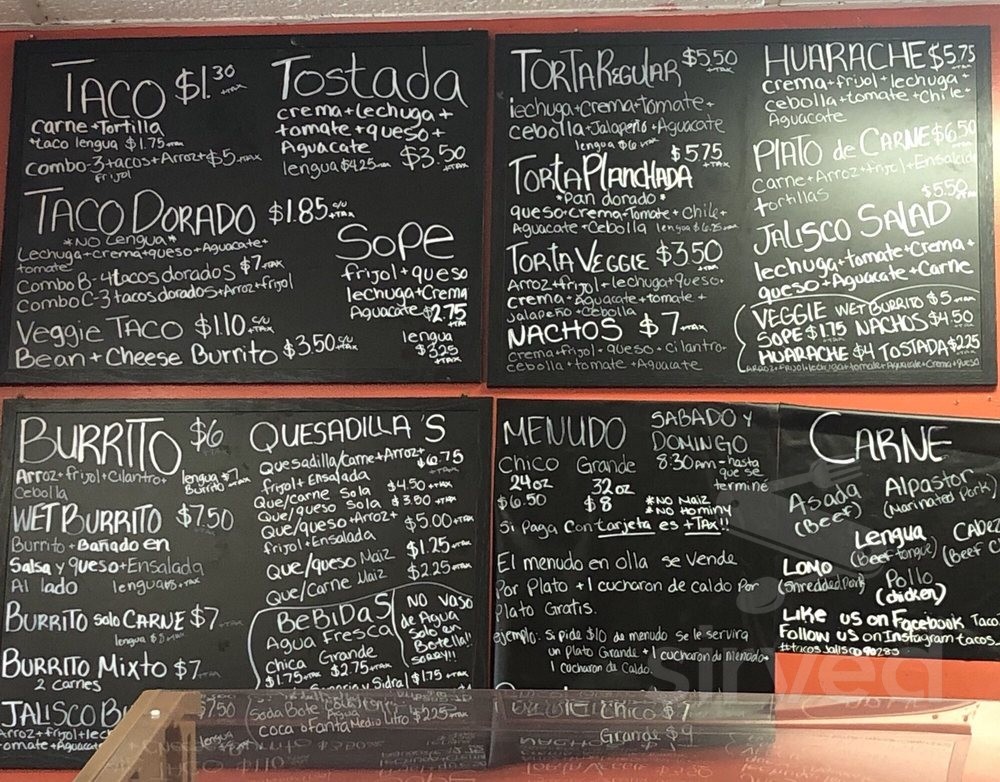 TACO $1.30 +TAX
carne+Tortilla
+taco lengua $1.75+TAX
Combo-3+tacos+Arroz+$5+TAX
frijol
Tostada
crema+lechuga+
tomate+queso+
Aguacate
lengua $4.25+TAX $3.50 +TAX
TACO DORADO $1.85 c/u +TAX
*NO Lengua*
Lechuga+crema+queso+Aguacate+
tomate
Combo B-4tacos dorados $7+TAX
Combo C-3 tacos dorados+Arroz+frijol
Veggie TACO $1.10 c/u +TAX
Bean+Cheese Burrito $3.50 c/u +TAX
Sope
frijol+queso
lechuga+Crema
Aguacate $2.75 +TAX
lengua
$3.25 +TAX
TORTA REGULAR $5.50 +TAX
lechuga+Crema+Tomate+
cebolla+Jalapeño+Aguacate
lengua $6+TAX
$5.75 +TAX
Torta PLANCHADA
*Pan dorado*
queso+crema+Tomate+Chile+
Aguacate+Cebolla lengua $6.25+TAX
TORTA VEGGIE $3.50
Arroz+frijol+lechuga+queso+
crema+Aguacate+tomate+
Jalapeño+Cebolla
NACHOS $7+TAX
crema+frijol+queso+cilantro+
cebolla+tomate+Aguacate
HUARACHE $5.75 +TAX
crema+frijol+lechuga+
cebolla+tomate+Chile+
Aguacate
PLATO de CARNE $6.50
Carne+Arroz+frijol+Ensalada
tortillas
$5.50+TAX
JALISCO SALAD
lechuga+tomate+Crema+
queso+Aguacate+Carne
VEGGIE WET BURRITO $5+TAX
SOPE $1.75 NACHOS $4.50
HUARACHE $4 TOSTADA $2.25
Arroz+Frijol+lechuga+tomate+Aguacate+Crema+Queso
BURRITO $6
Arroz+frijol+Cilantro+ lengua $7
Cebolla Burrito +TAX
WET BURRITO $7.50
Burrito+Bañado en
Salsa y queso+Ensalada
Al lado lengua $8+TAX
BURRITO solo CARNE $7
lengua $8+TAX
BURRITO MIXTO $7
2 carnes
JALISCO $7.50
Arroz+frijol+lech
tomate+Aguacat lengua
QUESADILLA'S
Quesadilla/Carne+Arroz+ $6.75
frijol+Ensalada +TAX
Que/carne Sola $4.50+TAX
Que/queso Sola $3.00+TAX
Que/queso+Arroz+ $5.00+TAX
frijol+Ensalada
Que/queso Maiz $1.25+TAX
Que/Carne Maiz $2.25+TAX
BeBiDaS
Agua Fresca
chica Grande
$1.75+TAX $2.75+TAX
Sangria y Sidral $1.75+TAX
Soda Bote
Agua
coca o fanta Medio Litro $2.25+TAX
NO VASO
de Agua
Solo en
Botella!!
SORRY!!
MENUDO SABADO Y
DOMINGO
Chico Grande 8:30Am-hasta
24oz 32oz que se
$6.50 $8 termine
*NO Maiz
*NO hominy
Si Paga Con tarjeta es +TAX!!
El menudo en olla se vende
Por Plato +1 cucharon de caldo Por
Plato Gratis.
ejemplo: Si pide $10 de menudo se le servira
un Plato Grande+1 cucharon de Menudo+
1 cucharon de Caldo.
Chico $7
Grande $9
CARNE
Asada
(Beef)
Al pastor
(Marinated Pork)
Lengua
(Beef tongue)
CABEZ
(Beef C
LOMO
(Shredded Pork)
Pollo
(chicken)
Like us on Facebook Taco
Follow us on Instagram tacos
#tacos.Jalisco90283
sirved